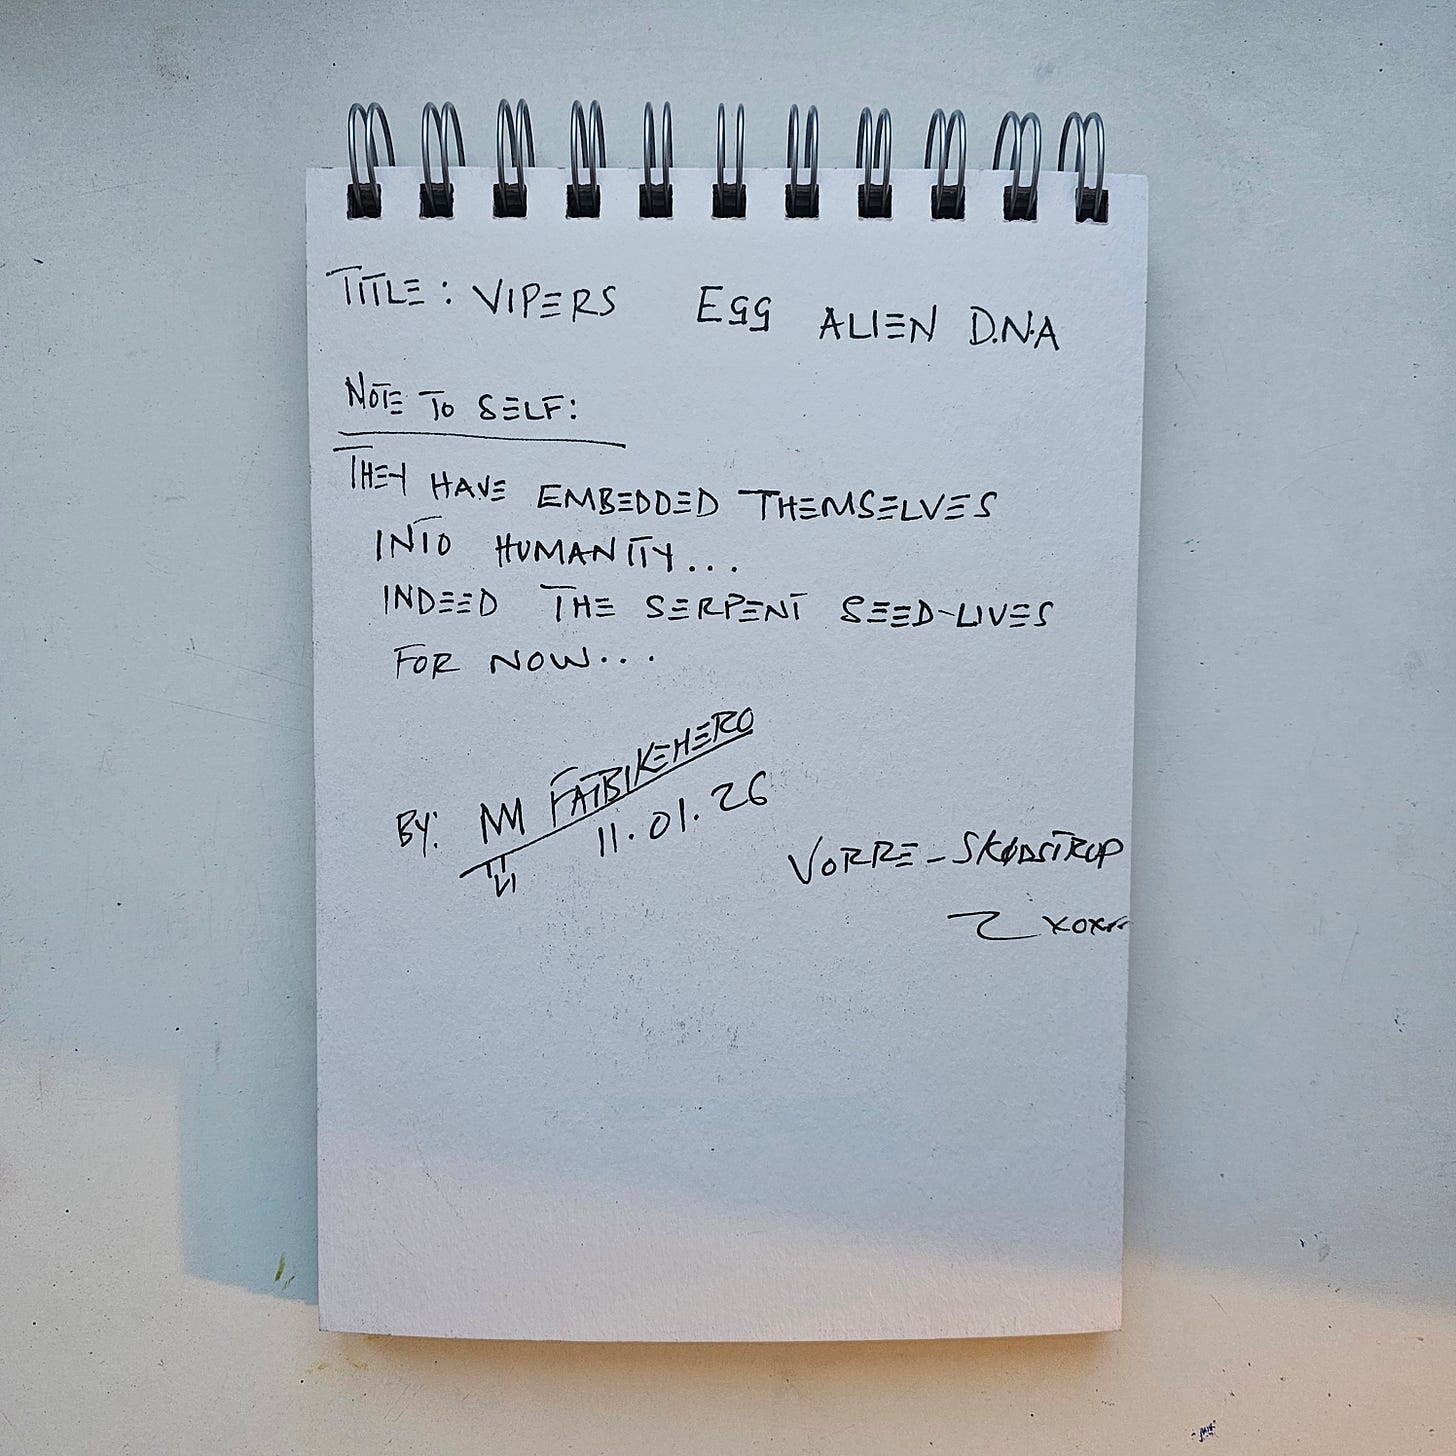 TITLE: VIPERS EGG ALIEN D.N.A
NOTE TO SELF:
THEY HAVE EMBEDDED THEMSELVES
INTO HUMANITY...
INDEED THE SERPENT SEED-LIVES
FOR NOW...
BY: FATBIKEHERO
11.01.26
VORRE-SKØDSTRUP